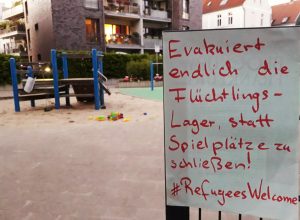 Evakuiert
endlich die
Flüchtlings-
Lager, statt
Spielplätze zu
schließen!
#RefugeesWelcome